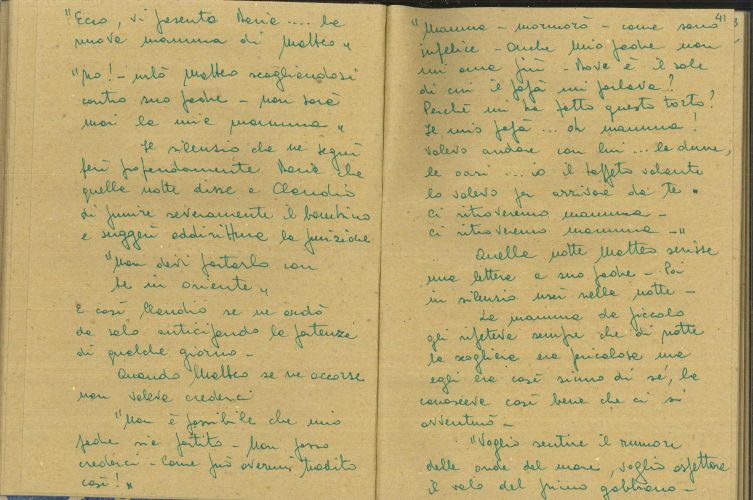 "Ecco, vi presento Daria .... la
nuova mamma di Matteo"
"No! - urlò Matteo scagliandosi
contro suo padre - non sarà
mai la mia mamma"
Il silenzio che ne seguì
ferì profondamente Daria che
quella notte disse a Claudio
di punire severamente il bambino
e suggerì addirittura la punizione
"Non devi portarlo con
te in oriente"
E così Claudio se ne andò
da solo anticipando la partenza
di qualche giorno -
Quando Matteo se ne accorse
non voleva crederci
"Non è possibile che mio
padre sia partito - Non posso
crederci - Come può avermi tradito
così!"
41
"Mamma - mormorò - come sono
infelice - Anche mio padre non
mi ama più - Dove è il sole
di cui il papà mi parlava?
Perché mi ha fatto questo torto?
Il mio papà ... oh mamma!
volevo andare con lui ... le dune,
le oasi ... io il tappeto volante
lo volevo per arrivare da te -
ci ritroveremo mamma -
ci ritroveremo mamma -"
Quella notte Matteo scrisse
una lettera a suo padre - Poi
in silenzio uscì nella notte -
La mamma da piccolo
gli ripeteva sempre che di notte
la scogliera era pericolosa ma
egli era così sicuro di sé, la
conosceva così bene che ci si
avventurò -
"Voglio sentire il rumore
delle onde del mare, voglio aspettare
il volo del primo gabbiano -